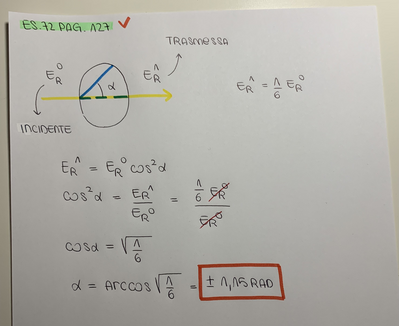 ES. 72 PAG. 127
TRASMESSA
E_R^0 α E_R^1
E_R^1 = 1/6 E_R^0
INCIDENTE
E_R^1 = E_R^0 cos²α
cos²α = E_R^1/E_R^0 = 1/6 E_R^0/E_R^0
cosα = √1/6
α = arccos √1/6 = ± 1,15 RAD